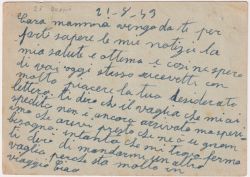 21-8-43
Cara mamma vengo da te per
farti sapere le mie notizie la
mia salute e ottima e così spero
di voi oggi stesso ricevetti con
molto piacere la tua desiderata
lettera ti dico che il vaglia che mi ai
spedito non e ancora arrivato ma spero
che arrivi presto che ne o un gran
bisogno intanto che mi trovo fermo
ti dico di mandarmi un altro
vaglia perche sto molto in
viaggio ciao